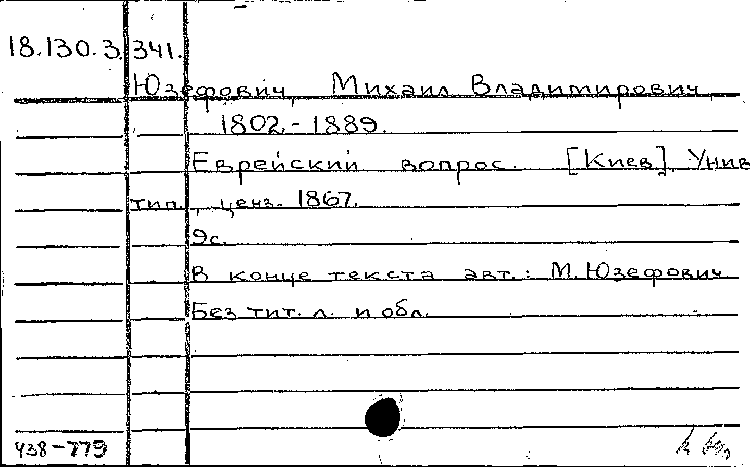 18.130.3.341.
Юзефович, Михаил Владимирович,
1802-1889.
Еврейский вопрос. [Киев], Унив
тип., ценз. 1867.
9с.
В конце текста авт.: М.Юзефович
Без тит. л. и обл.
438-779